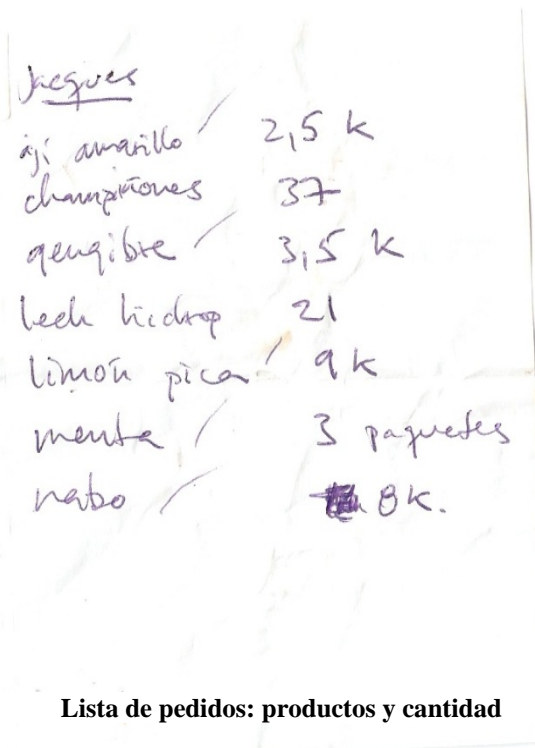 Jacques
ají amarillo / 2,5 k
champiñones 37
gengibre / 3,5 k
lech hidrop 21
limón pica / 9 k
menta / 3 paquetes
nabo / 8 k.
Lista de pedidos: productos y cantidad